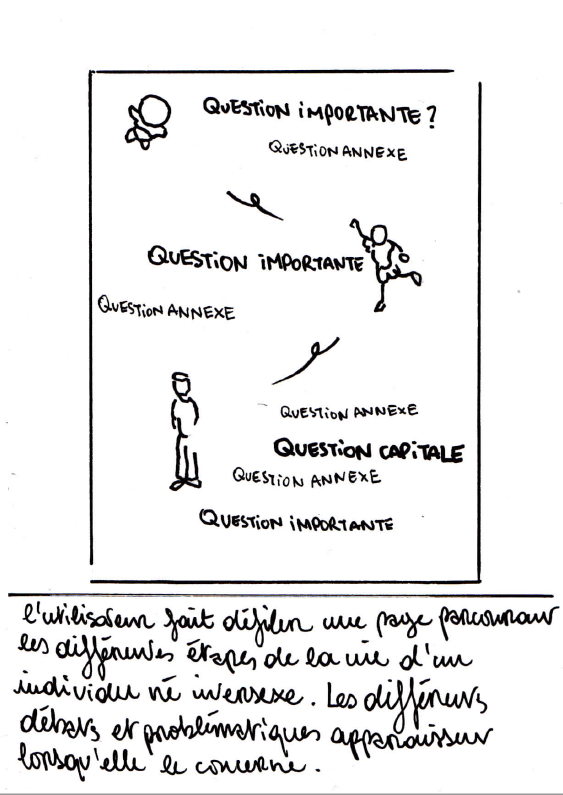 QUESTION IMPORTANTE ?
QUESTION ANNEXE
QUESTION IMPORTANTE
QUESTION ANNEXE
QUESTION ANNEXE
QUESTION CAPITALE
QUESTION ANNEXE
QUESTION IMPORTANTE
l'utilisateur fait défiler une page parcourant
les différentes étapes de la vie d'un
individu né intersexe. Les différents
débats et problématiques apparaissent
lorsqu'elle le concerne.